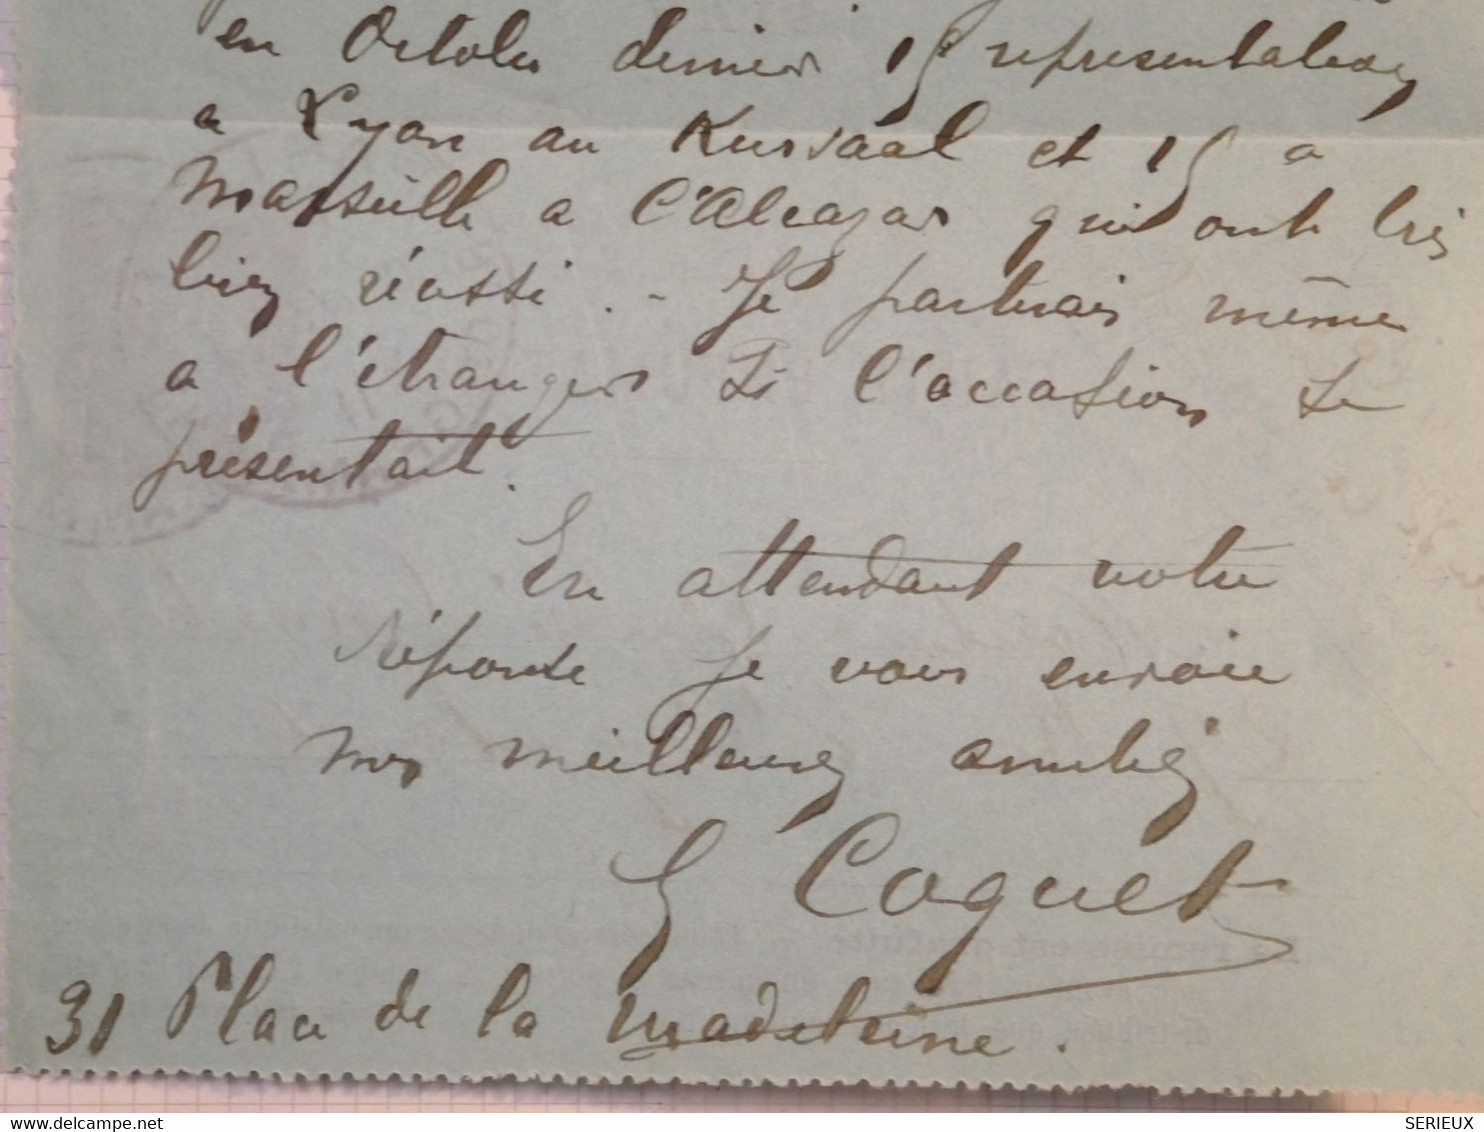 en Octobre dernier 15 representations
a Lyon au Kursaal et 15 a
Marseille a l'Alcazar qui ont très
bien réussi. - Je partirais même
a l'étranger si l'occasion se
présentait.
En attendant votre
réponse je vous envoie
mes meilleures amitiés
Coquet
31 Place de la Madeleine.
delcampe.net
SERIEUX